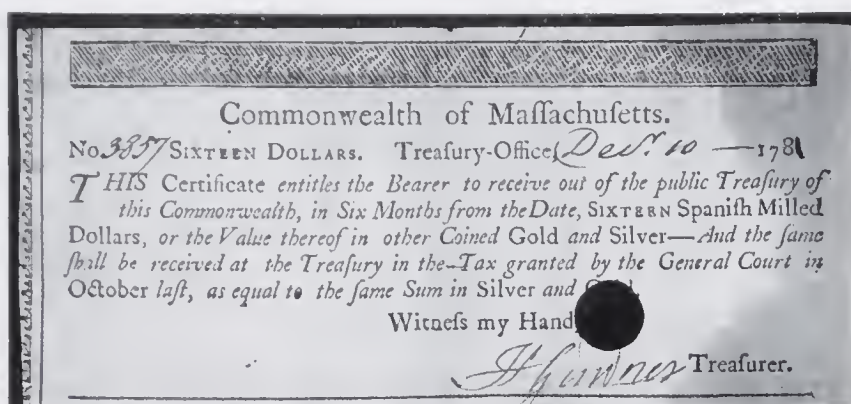 Commonwealth of Maſſachuſetts.
No 3857 SIXTEEN DOLLARS. Treaſury-Office, Decr. 10 — 1781
THIS Certificate entitles the Bearer to receive out of the public Treaſury of
this Commonwealth, in Six Months from the Date, SIXTEEN Spaniſh Milled
Dollars, or the Value thereof in other Coined Gold and Silver—And the ſame
ſhall be received at the Treaſury in the Tax granted by the General Court in
October laſt, as equal to the ſame Sum in Silver and
Witneſs my Hand,
H Gardner Treaſurer.